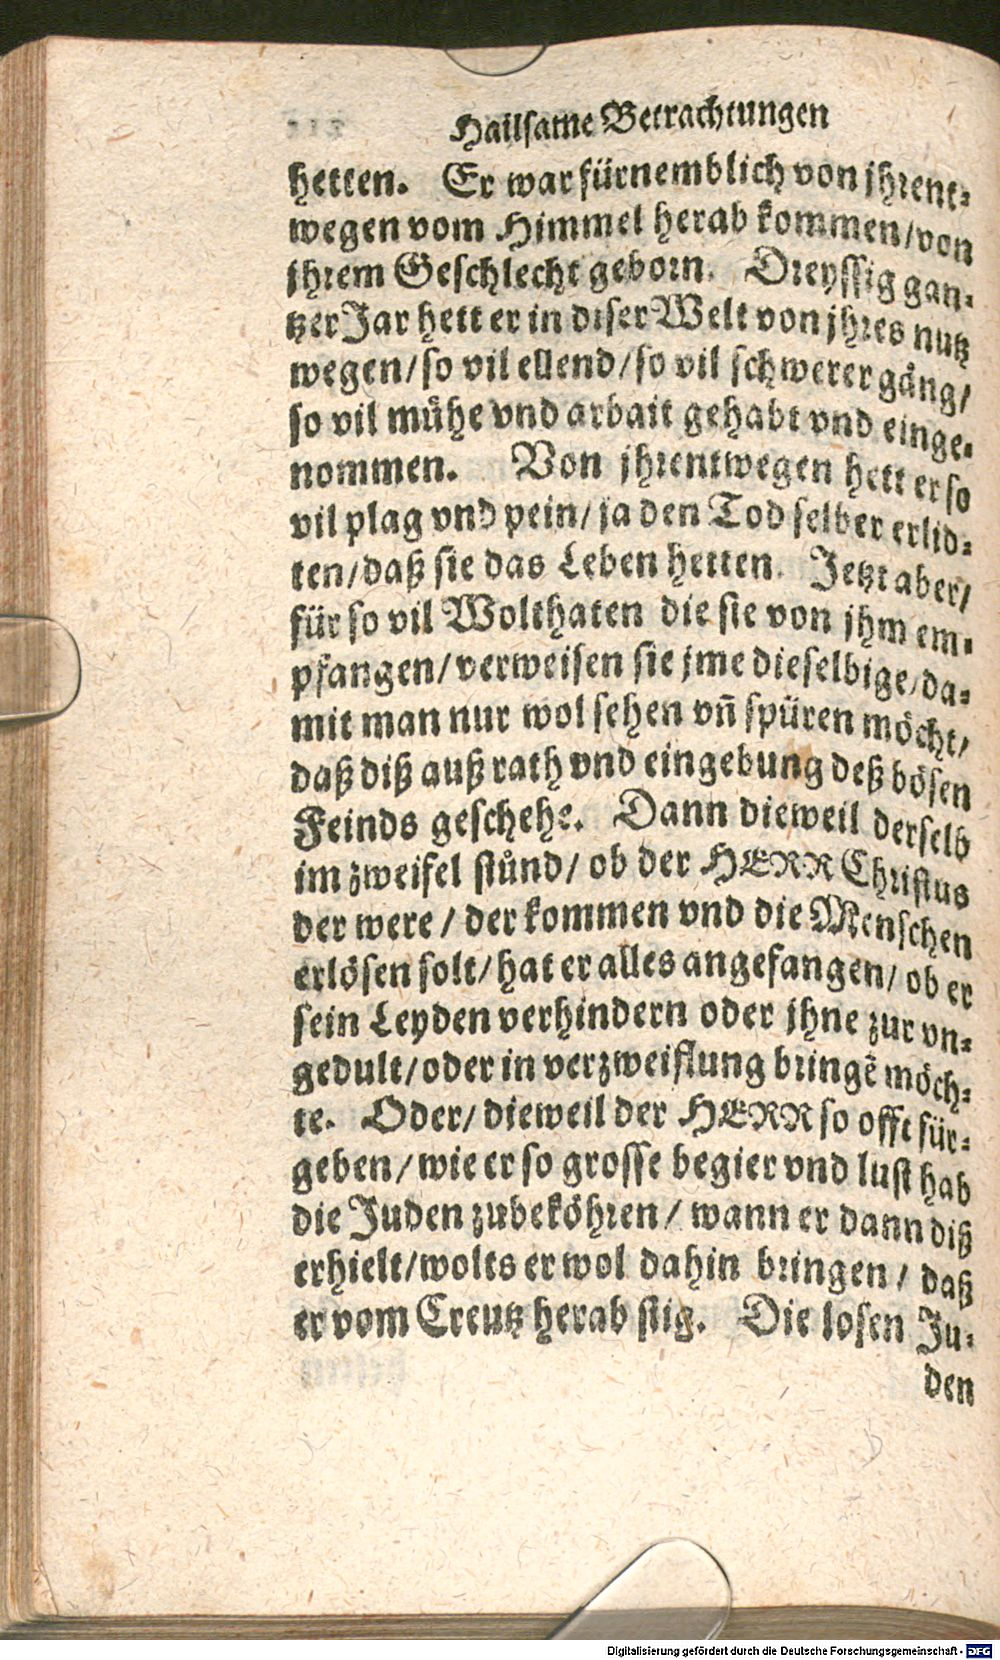 Hailsame Betrachtungen
hetten. Er war fürnemblich von jhrent-
wegen vom Himmel herab kommen/von
jhrem Geschlecht geborn. Dreyssig gan-
tzer Jar hett er in diser Welt von jhres nutz
wegen/so vil ellend/so vil schwerer gäng/
so vil mühe vnd arbait gehabt vnd einge-
nommen. Von jhrentwegen hett er so
vil plag vnd pein/ja den Tod selber erlid-
ten/daß sie das Leben hetten. Jetzt aber/
für so vil Wolthaten die sie von jhm em-
pfangen/verweisen sie jme dieselbige/da-
mit man nur wol sehen vñ spüren möcht/
daß diß auß rath vnd eingebung deß bösen
Feinds geschehe. Dann dieweil derselb
im zweifel stůnd/ ob der HERR Christus
der were / der kommen vnd die Menschen
erlösen solt/hat er alles angefangen/ ob er
sein Leyden verhindern oder jhne zur vn-
gedult/oder in verzweiflung bringē möch-
te. Oder/ dieweil der HERR so offt für-
geben/wie er so grosse begier vnd lust hab
die Juden zubeköhren/ wann er dann diß
erhielt/wolts er wol dahin bringen/ daß
er vom Creutz herab stig. Die losen Ju-
den
Digitalisierung gefördert durch die Deutsche Forschungsgemeinschaft - DFG